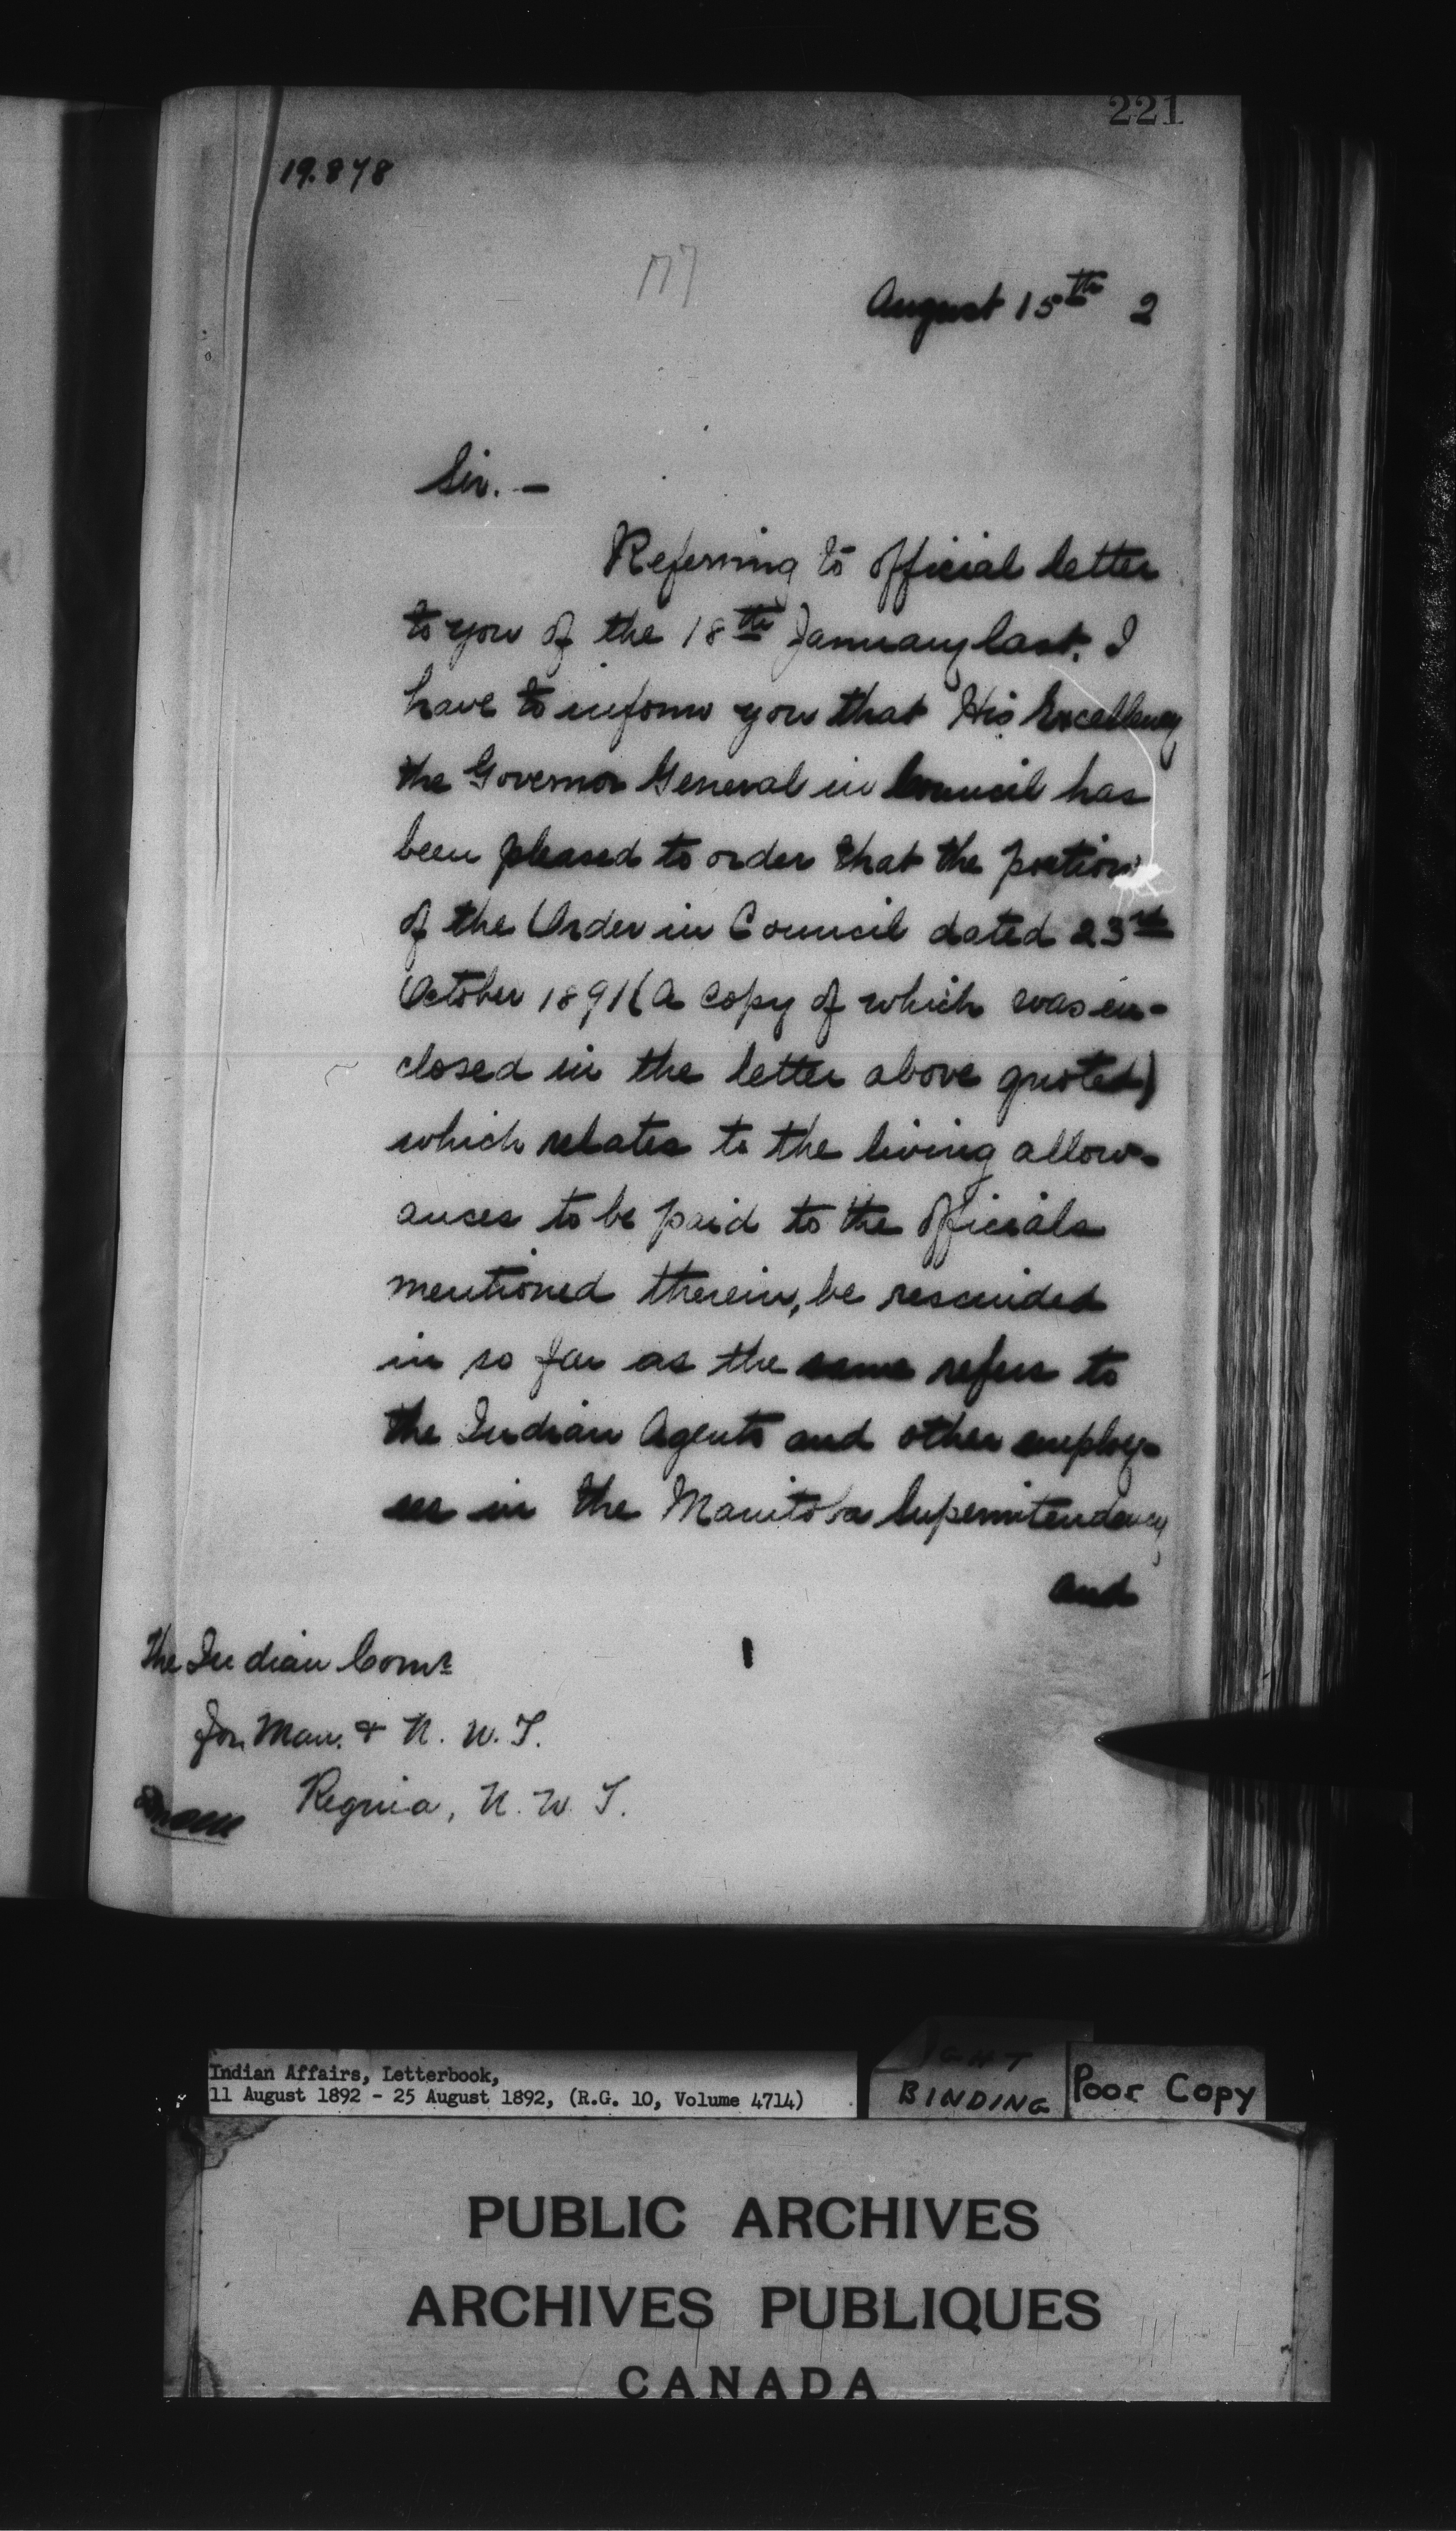 221
19.878
August 15th 2
Sir. —
Referring to official letter
to you of the 18th January last, I
have to inform you that His Excellency
the Governor General in Council has
been pleased to order that the portion
of the Order in Council dated 23rd
October 1891 (a copy of which was en-
closed in the letter above quoted)
which relates to the living allow-
ances to be paid to the officials
mentioned therein, be rescinded
in so far as the same refers to
the Indian Agents and other employ-
ees in the Manitoba Superintendency
and
The Indian Comr
for Man. & N. W. T.
Regina, N. W. T.
Indian Affairs, Letterbook,
11 August 1892 - 25 August 1892, (R.G. 10, Volume 4714)
BINDING
Poor Copy
PUBLIC ARCHIVES
ARCHIVES PUBLIQUES
CANADA